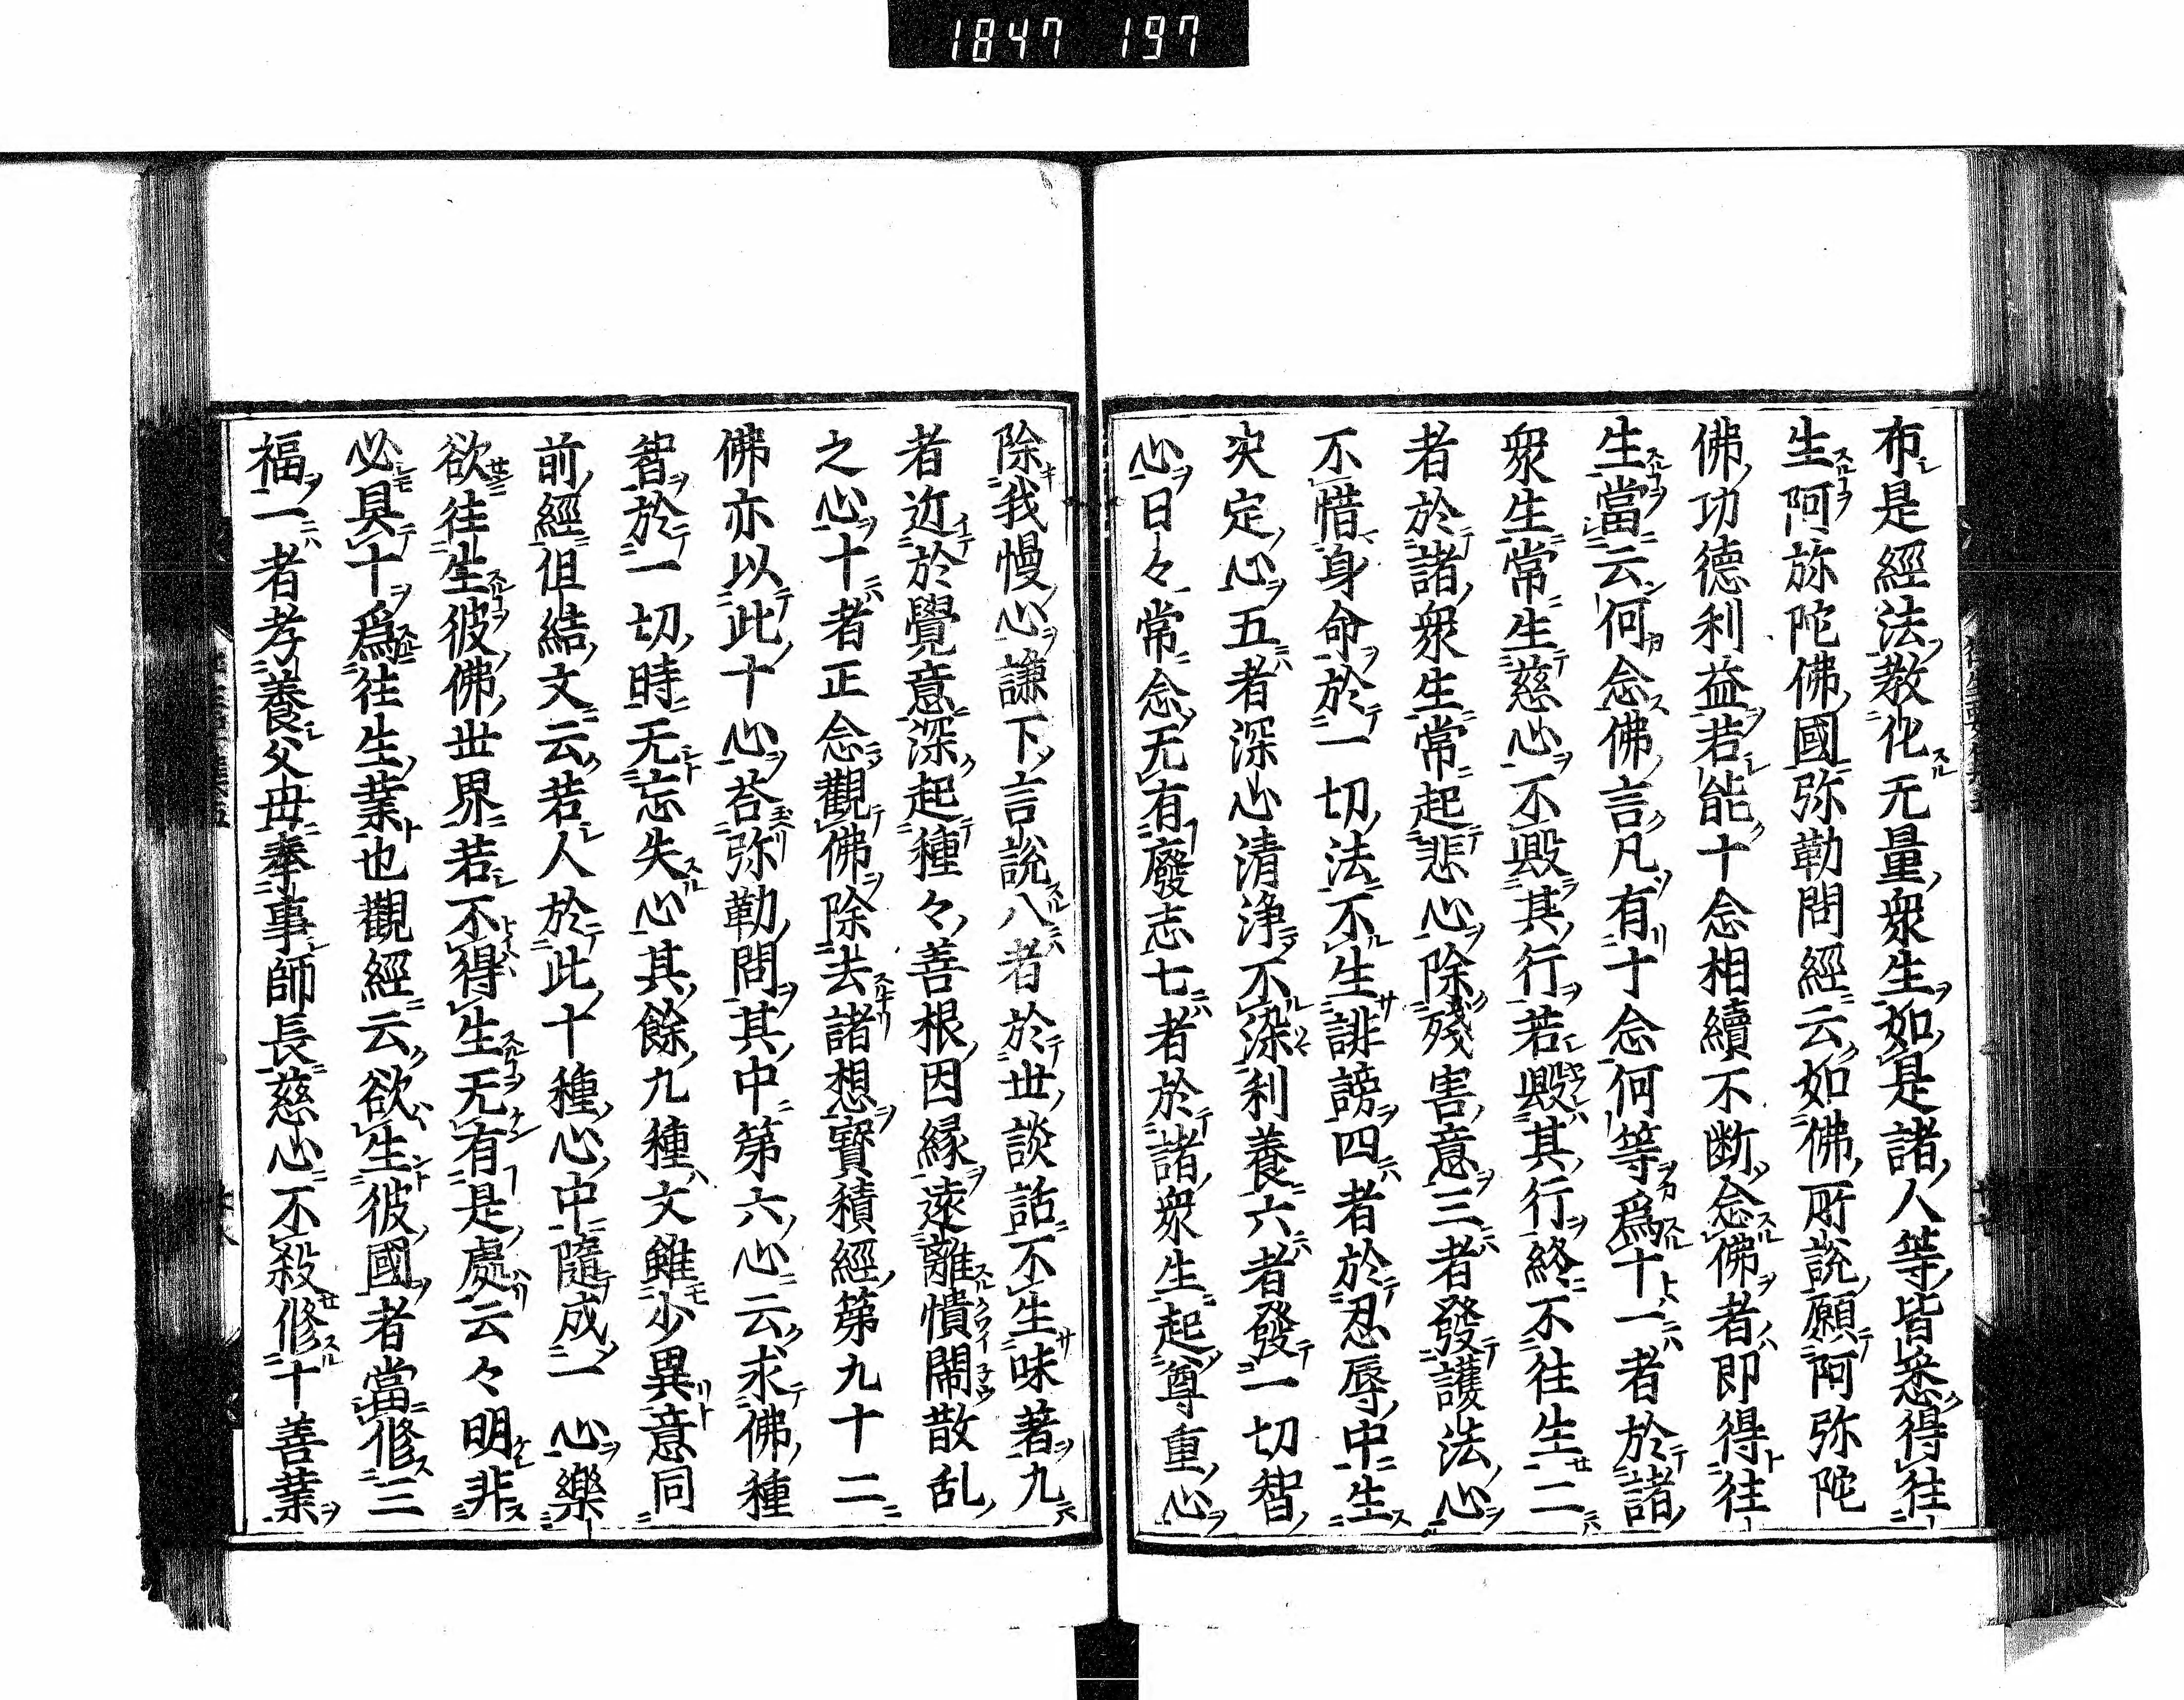 1847 197
布是經法教化无量衆生如是諸人等皆悉得往
生阿弥陀佛國弥勒問經云如佛所說願阿弥陀
佛功德利益若能十念相續不断念佛者即得往
生當云何念佛言凡有十念何等爲十一者於諸
衆生常生慈心不毀其行若毀其行終不往生二
者於諸衆生常起悲心除殘害意三者發護法心
不惜身命於一切法不生誹謗四者於忍辱中生
决定心五者深心清浄不染利養六者發一切智
心日々常念无有廢志七者於諸衆生起尊重心
除我慢心謙下言説八者於世談話不生味著九
者近於覺意深起種々善根因縁遠離憒閙散乱
之心十者正念觀佛除去諸想寳積經第九十二
佛亦以此十心荅弥勒問其中第六心云求佛種
智於一切時无忘失心其餘九種文雖少異意同
前經但結文云若人於此十種心中隨成一心樂
欲往生彼佛世界若不得生无有是處云々明非
必具十爲往生業也觀經云欲生彼國者當修三
福一者孝養父母奉事師長慈心不殺修十善業